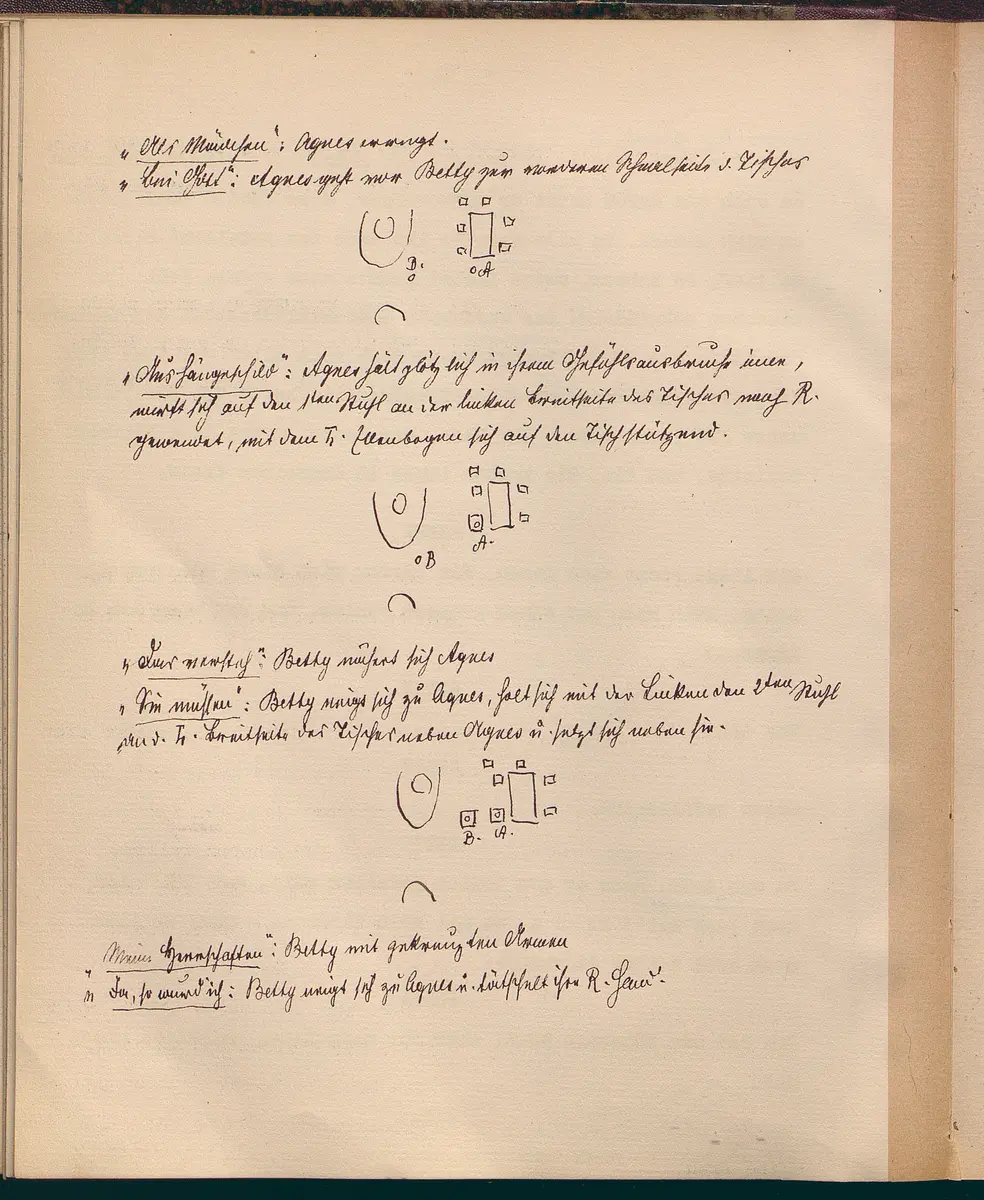 „Als Mädchen": Agnes erregt.
„Bei Gott": Agnes geht vor Betty zur vorderen Schmalseite d. Tisches
B.
A
„Aushängeschild": Agnes hält plötzlich in ihrem Gefühlsausbruche inne,
wirft sich auf den 1ten Stuhl an der linken Breitseite des Tisches nach R.
gewendet, mit dem L. Ellenbogen sich auf den Tisch stützend.
A.
B
„Das versteh": Betty nähert sich Agnes
„Sie müssen": Betty neigt sich zu Agnes, holt sich mit der Linken den 2ten Stuhl
an d. L. Breitseite des Tisches neben Agnes u. setzt sich neben sie.
B. A.
„Meine Herrschaften": Betty mit gekreuzten Armen
„Ja, so wurd ich: Betty neigt sich zu Agnes u. tätschelt ihre R. Hand.